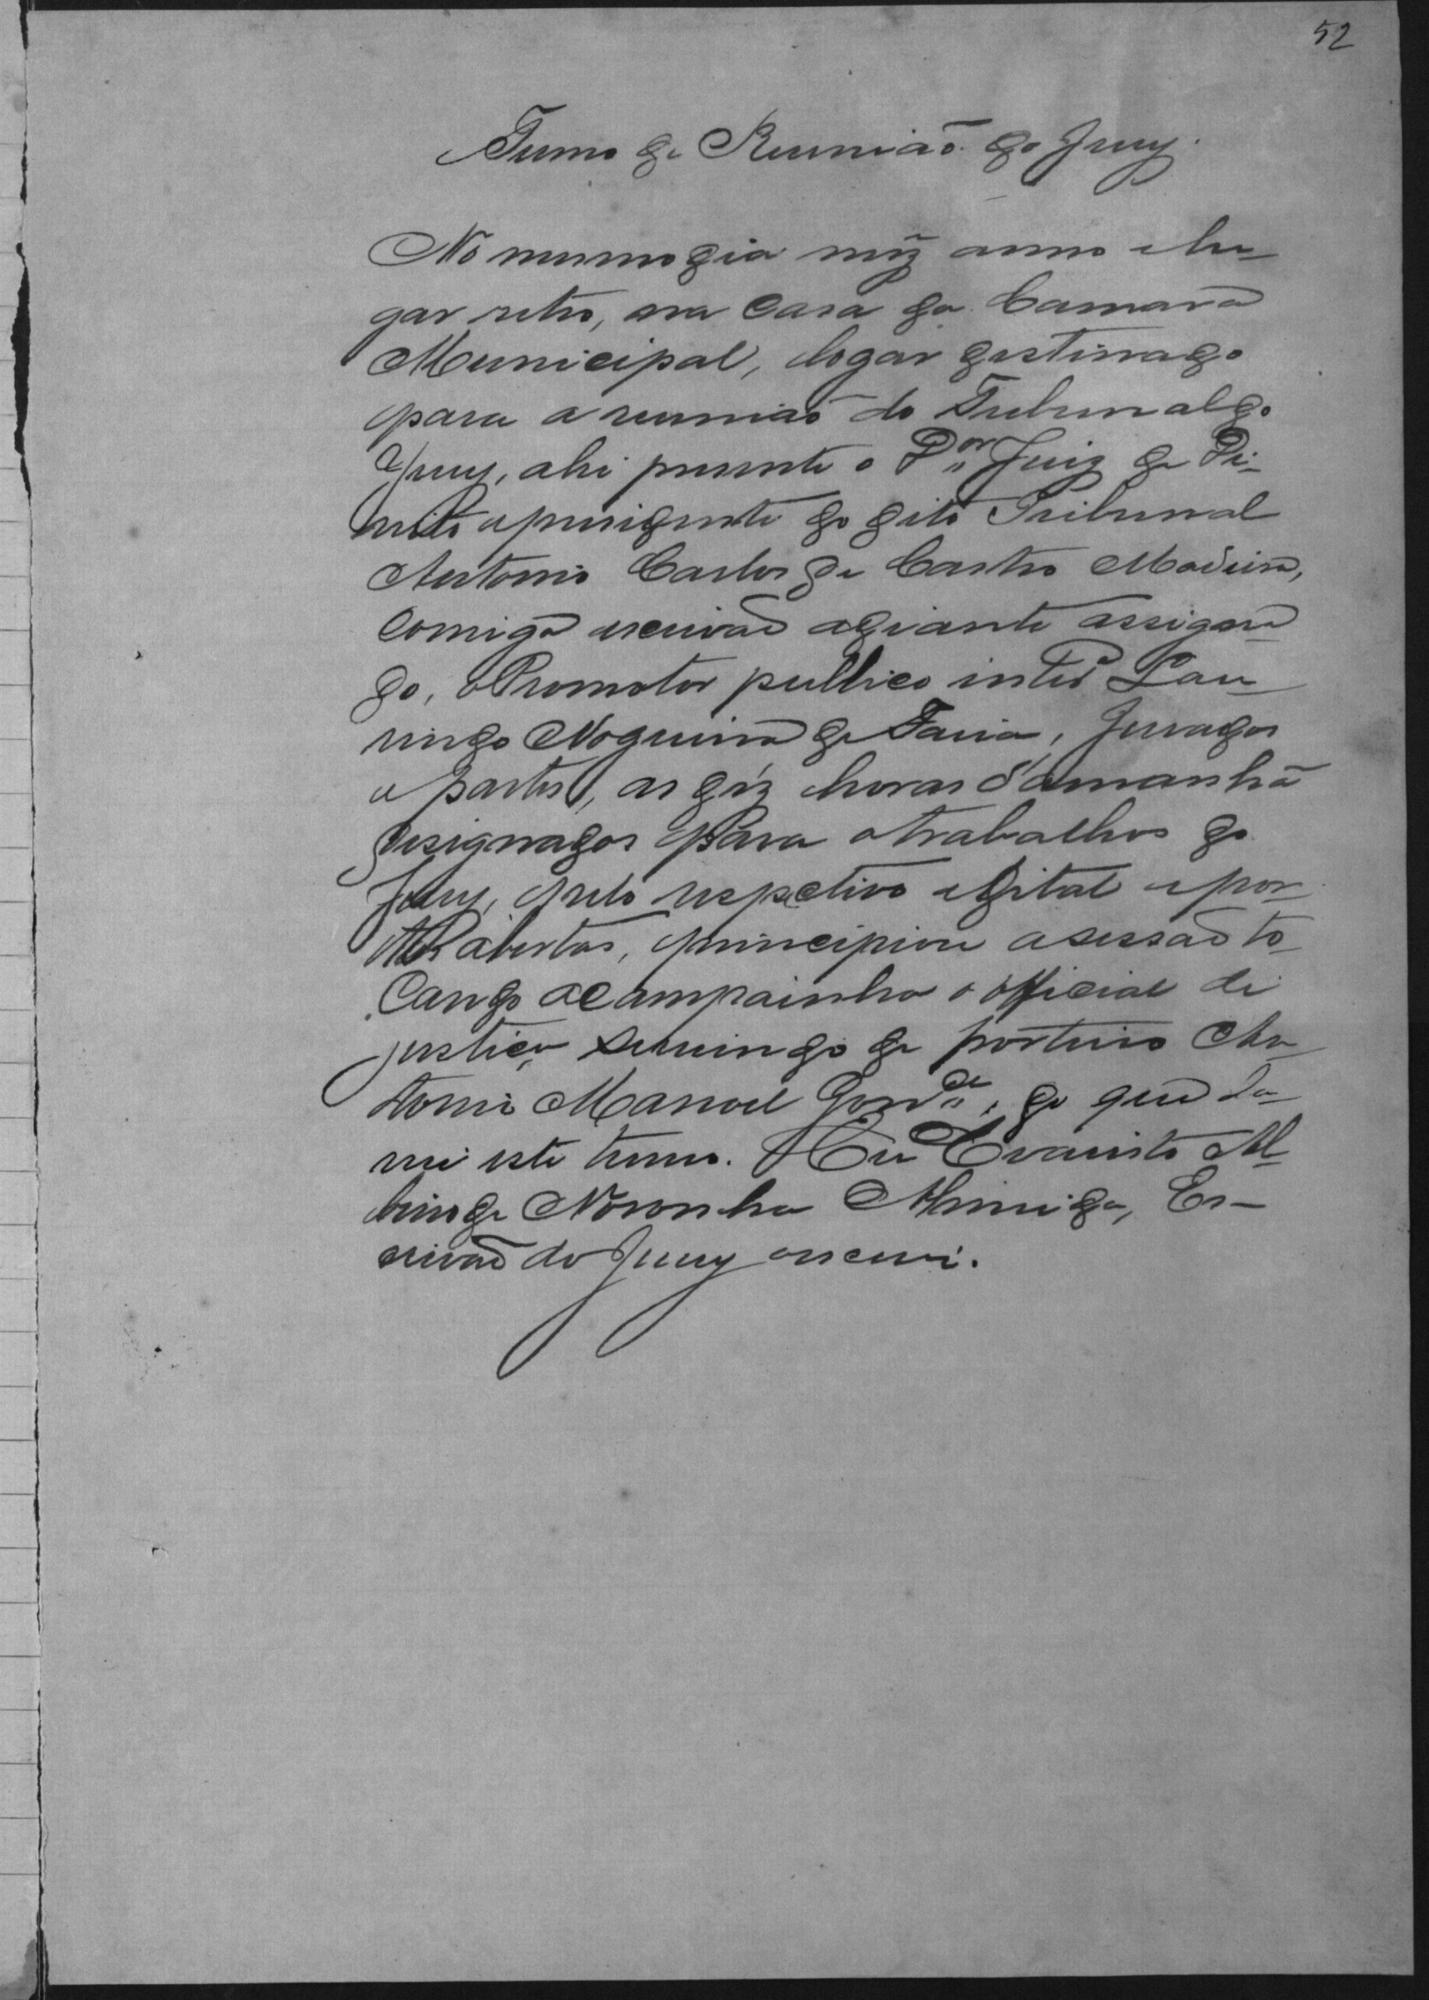 52
Termo de Reunião do Jury.
No mesmo dia mez anno e lu-
gar retro, na Casa da Camara
Municipal, logar destinado
para a reunião do Tribunal do
Jury, ahi presente o Dor Juiz de Di-
reito e presidente do dito Tribunal
Antonio Carlos de Castro Madeira,
Comigo escrivão adiante assigna-
do, o Promotor publico intero Lau-
rindo Nogueira de Faria, Jurados
e partes, as déz horas d'amanhã
designados para o trabalhos do
Jury, pelo respectivo edital e por-
tas abertas, principiou a sessão to-
cando a campainha o official de
justiça servindo de porteiro An-
tonio Manoel de que la-
vrei este termo. Eu Evaristo Al-
bino de Noronha Almeida, Es-
crivão do Jury o escrevi.